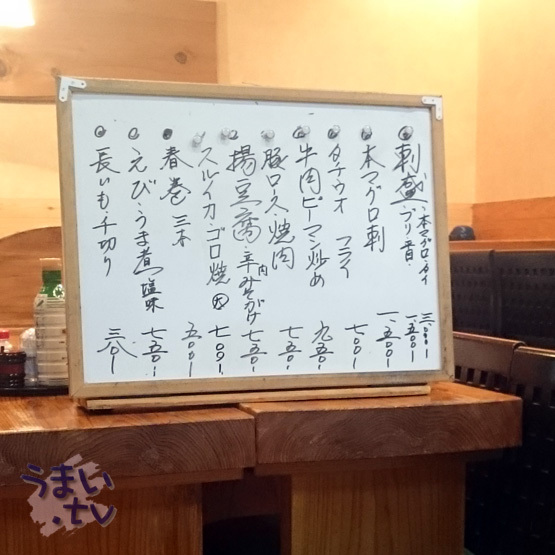 刺盛・本マグロ・タイ
・ブリ・
三〇〇〇-
一五〇〇-
本マグロ刺
一、五〇〇-
タチウオ フライ
七〇〇-
牛肉ピーマン炒め
九五〇-
豚ロース・焼肉
七五〇-
揚豆腐・辛肉みそがけ
七五〇-
スルイカ・ゴロ焼 大
七〇〇-
春巻 三本
五〇〇-
えび・うま煮 塩味
七五〇-
長いも・千切り
三八〇-
うまい
.tv